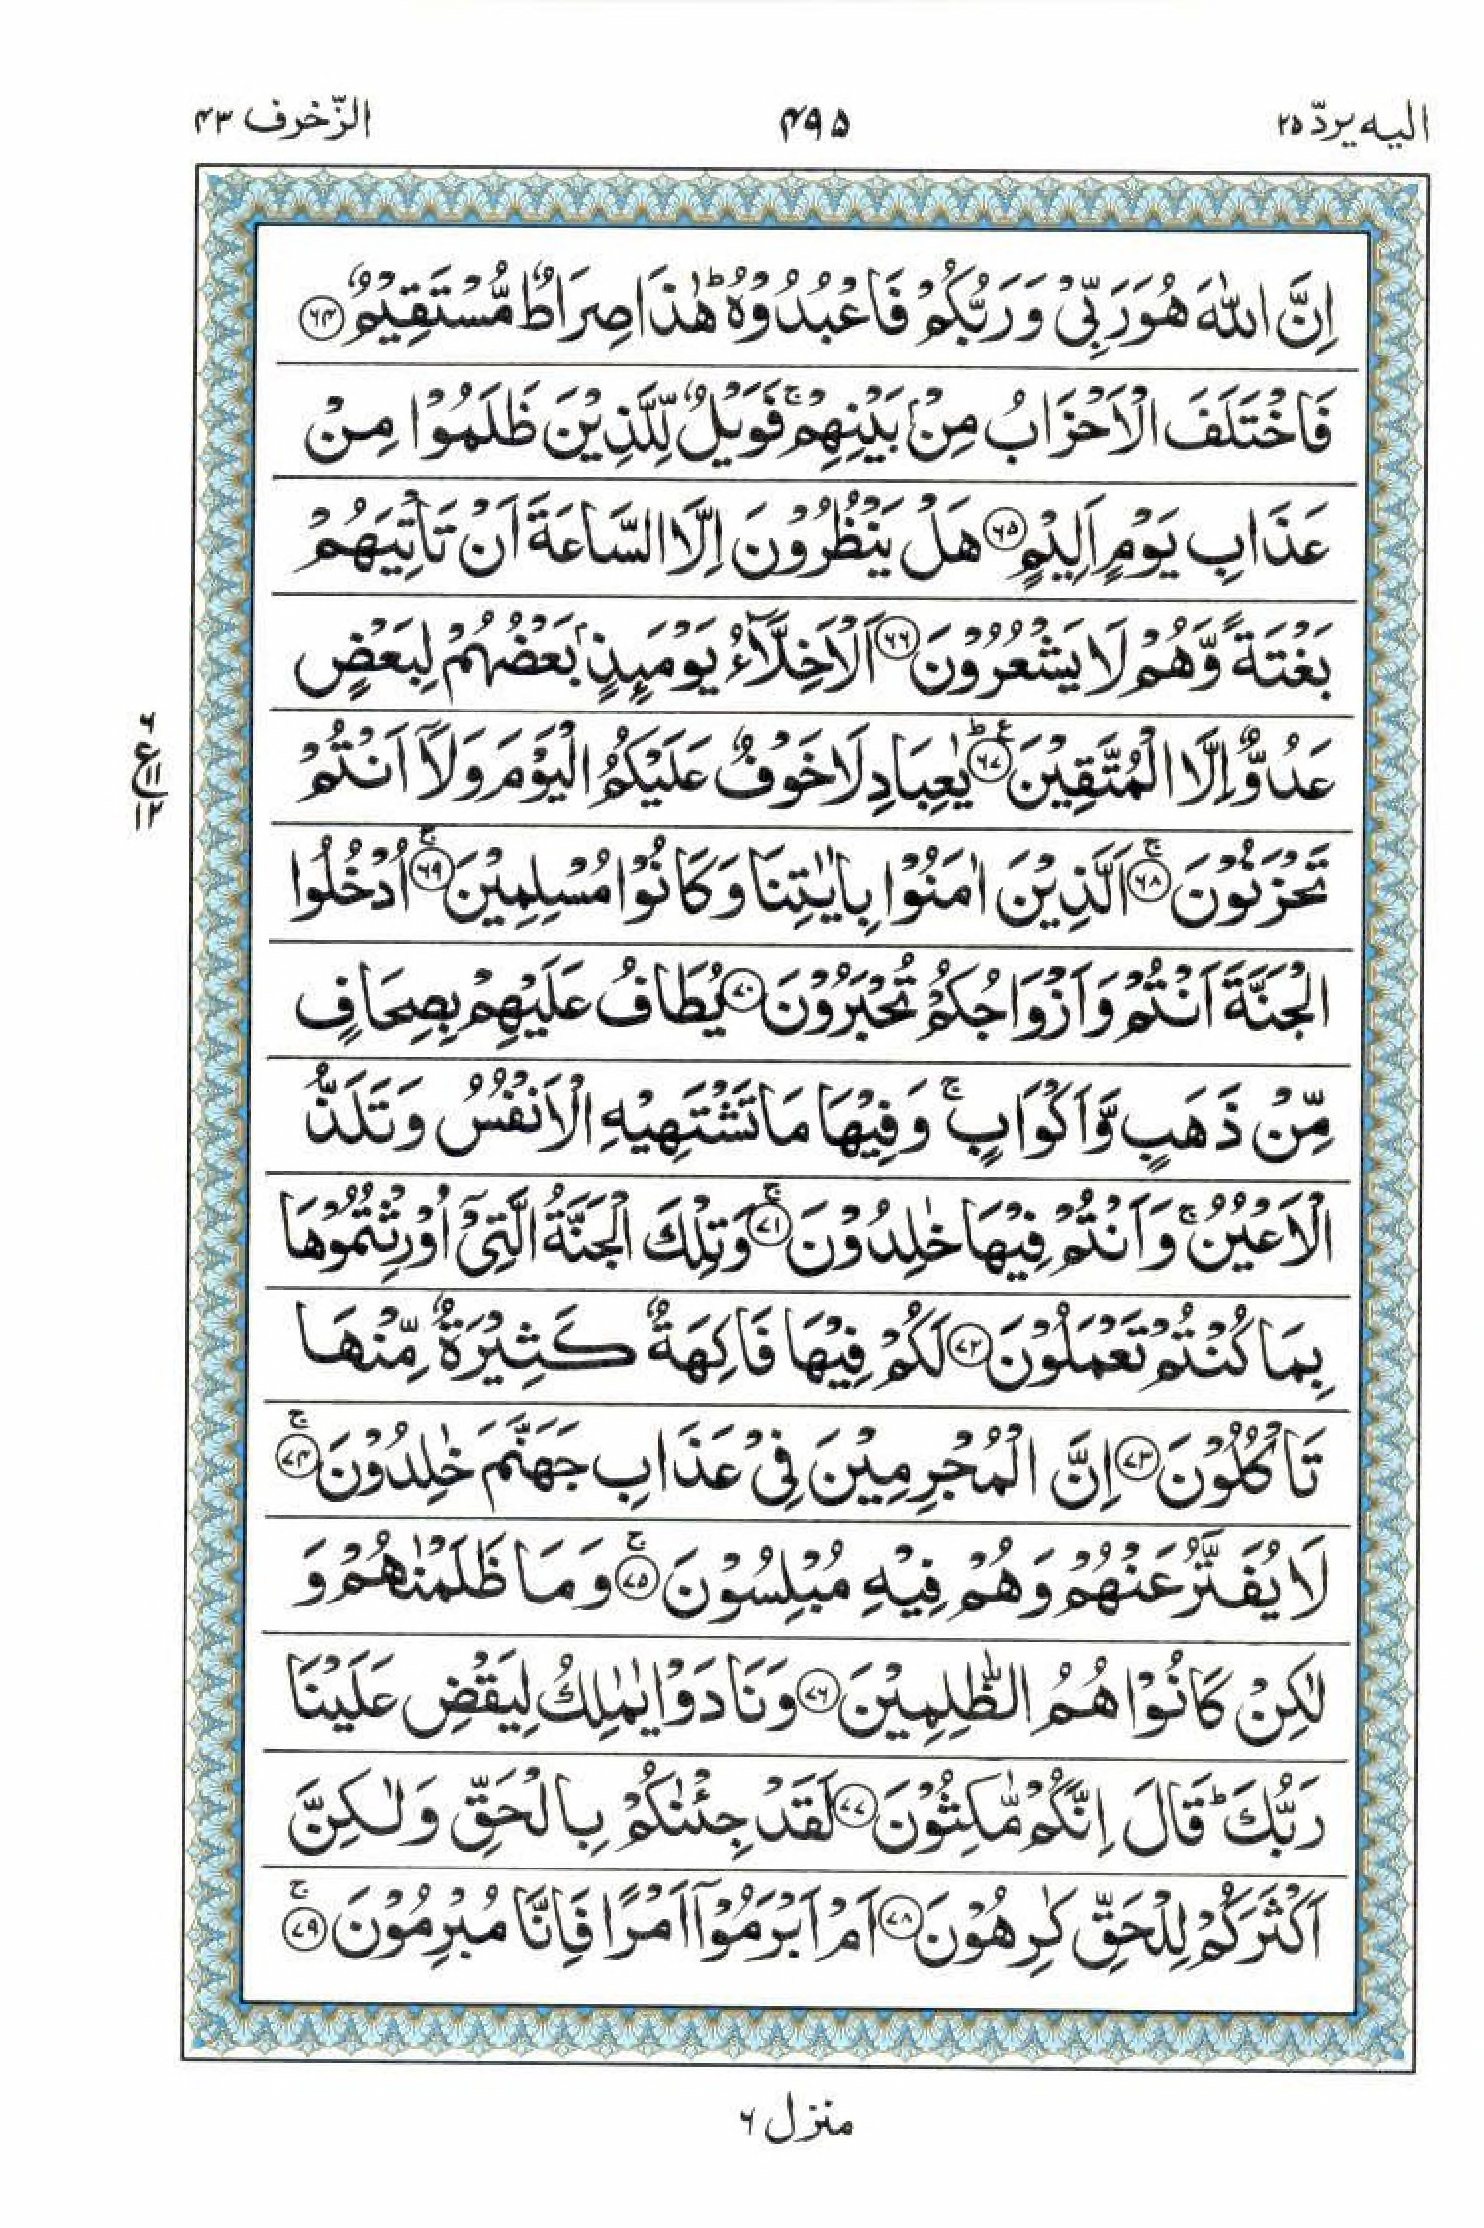 الیه یردّ ۲۵
۴۹۵
الزّخرف ۴۳
اِنَّ اللّٰهَ هُوَ رَبِّیْ وَ رَبُّكُمْ فَاعْبُدُوْهُ ؕ هٰذَا صِرَاطٌ مُّسْتَقِیْمٌ ۶۴
فَاخْتَلَفَ الْاَحْزَابُ مِنْۢ بَیْنِهِمْ ۚ فَوَیْلٌ لِّلَّذِیْنَ ظَلَمُوْا مِنْ
عَذَابِ یَوْمٍ اَلِیْمٍ ۶۵ هَلْ یَنْظُرُوْنَ اِلَّا السَّاعَةَ اَنْ تَاْتِیَهُمْ
بَغْتَةً وَّ هُمْ لَا یَشْعُرُوْنَ ۶۶ اَلْاَخِلَّآءُ یَوْمَىِٕذٍۭ بَعْضُهُمْ لِبَعْضٍ
عَدُوٌّ اِلَّا الْمُتَّقِیْنَ ؕ۶۷ یٰعِبَادِ لَا خَوْفٌ عَلَیْكُمُ الْیَوْمَ وَ لَاۤ اَنْتُمْ
۶
ع
۱۱
۱۲
تَحْزَنُوْنَ ۚ۶۸ اَلَّذِیْنَ اٰمَنُوْا بِاٰیٰتِنَا وَ كَانُوْا مُسْلِمِیْنَ ۚ۶۹ اُدْخُلُوا
الْجَنَّةَ اَنْتُمْ وَ اَزْوَاجُكُمْ تُحْبَرُوْنَ ۷۰ یُطَافُ عَلَیْهِمْ بِصِحَافٍ
مِّنْ ذَهَبٍ وَّ اَكْوَابٍ ۚ وَ فِیْهَا مَا تَشْتَهِیْهِ الْاَنْفُسُ وَ تَلَذُّ
الْاَعْیُنُ ۚ وَ اَنْتُمْ فِیْهَا خٰلِدُوْنَ ۚ۷۱ وَ تِلْكَ الْجَنَّةُ الَّتِیْۤ اُوْرِثْتُمُوْهَا
بِمَا كُنْتُمْ تَعْمَلُوْنَ ۷۲ لَكُمْ فِیْهَا فَاكِهَةٌ كَثِیْرَةٌ مِّنْهَا
تَاْكُلُوْنَ ۷۳ اِنَّ الْمُجْرِمِیْنَ فِیْ عَذَابِ جَهَنَّمَ خٰلِدُوْنَ ۚ۷۴
لَا یُفَتَّرُ عَنْهُمْ وَ هُمْ فِیْهِ مُبْلِسُوْنَ ۚ۷۵ وَ مَا ظَلَمْنٰهُمْ وَ
لٰكِنْ كَانُوْا هُمُ الظّٰلِمِیْنَ ۷۶ وَ نَادَوْا یٰمٰلِكُ لِیَقْضِ عَلَیْنَا
رَبُّكَ ؕ قَالَ اِنَّكُمْ مّٰكِثُوْنَ ۷۷ لَقَدْ جِئْنٰكُمْ بِالْحَقِّ وَ لٰكِنَّ
اَكْثَرَكُمْ لِلْحَقِّ كٰرِهُوْنَ ۷۸ اَمْ اَبْرَمُوْۤا اَمْرًا فَاِنَّا مُبْرِمُوْنَ ۚ۷۹
منزل ۶